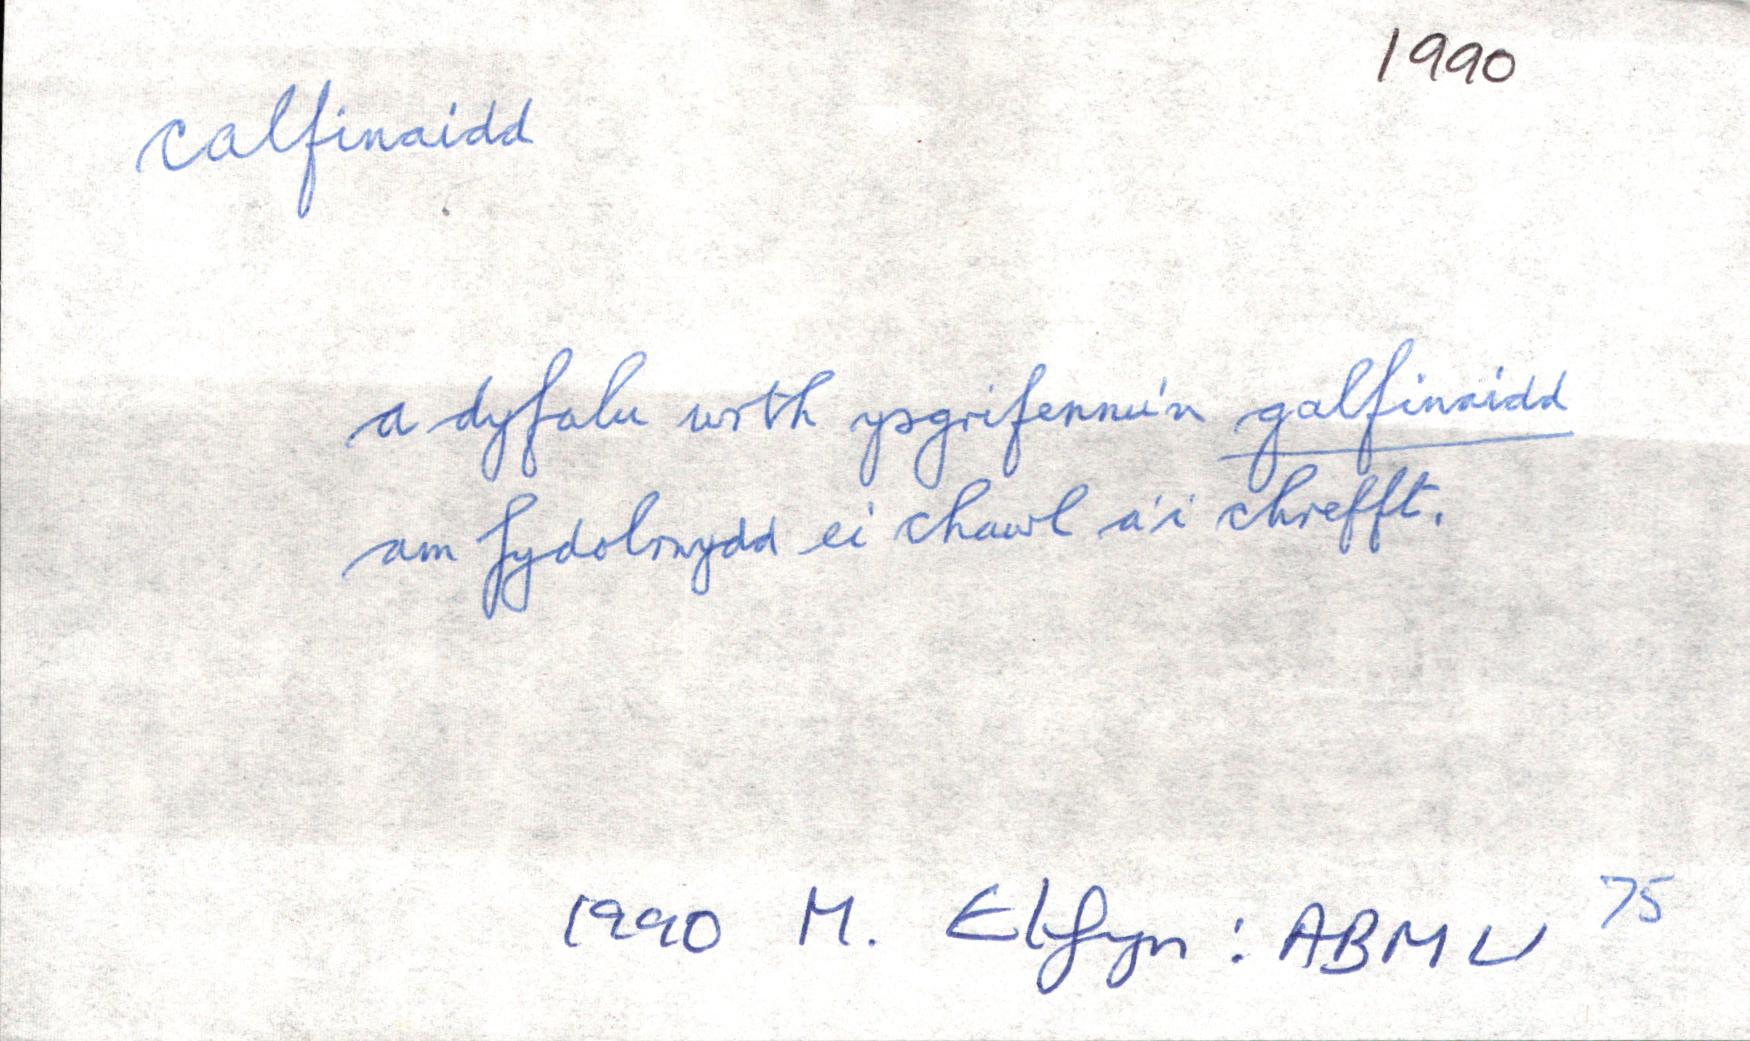 1990
calfinaidd
a dyfalu wrth ysgrifennu'n galfinaidd
am fydolrwydd ei chawl a'i chrefft.
1990 M. Elfyn : ABMU 75